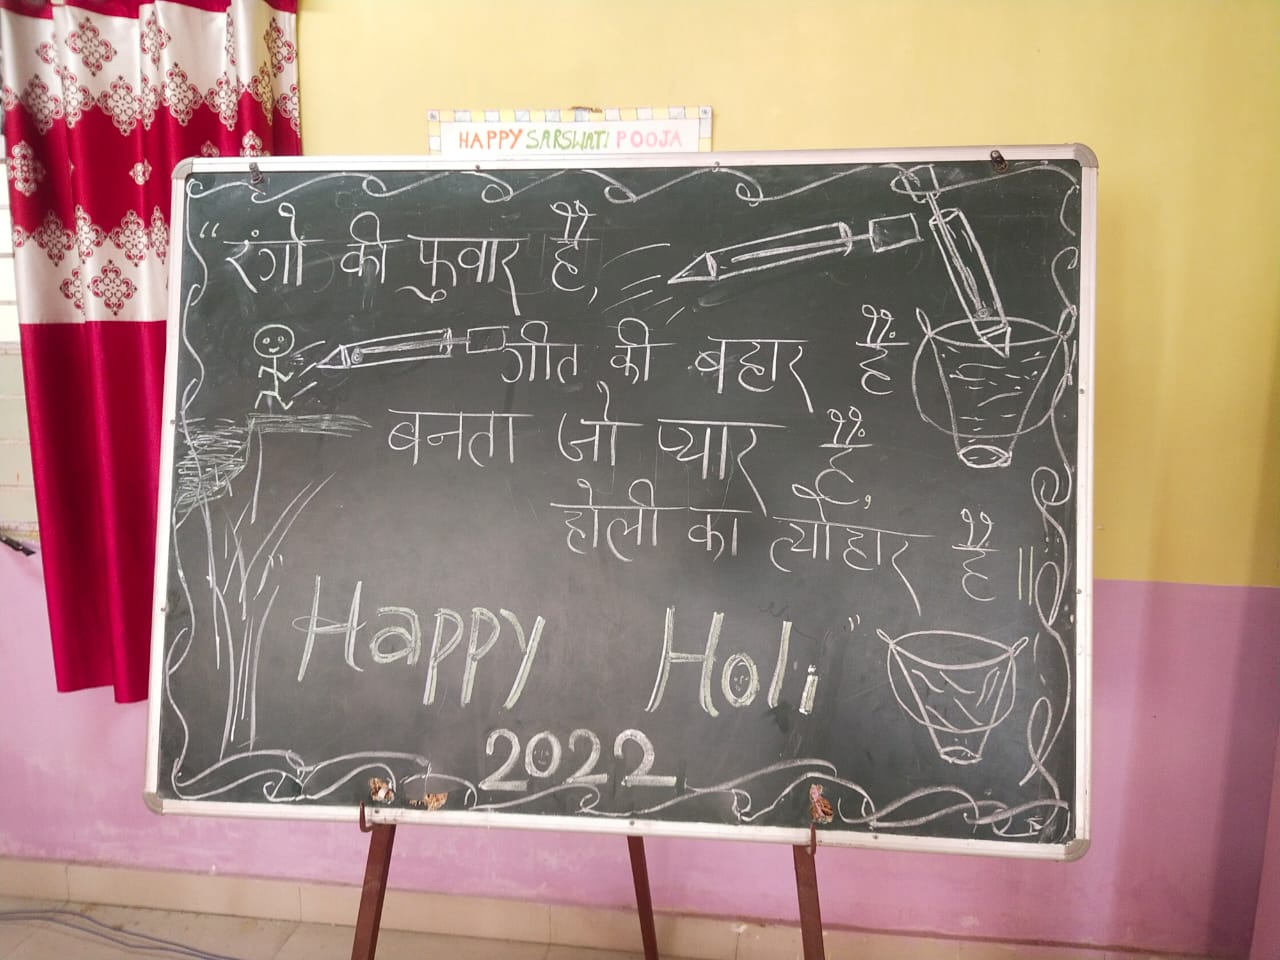 HAPPY SARSWATI POOJA
“रंगो की फुवार है,
गीत की बहार है
बनता जो प्यार है,
होली का त्योहार है ॥"
Happy Holi
2022